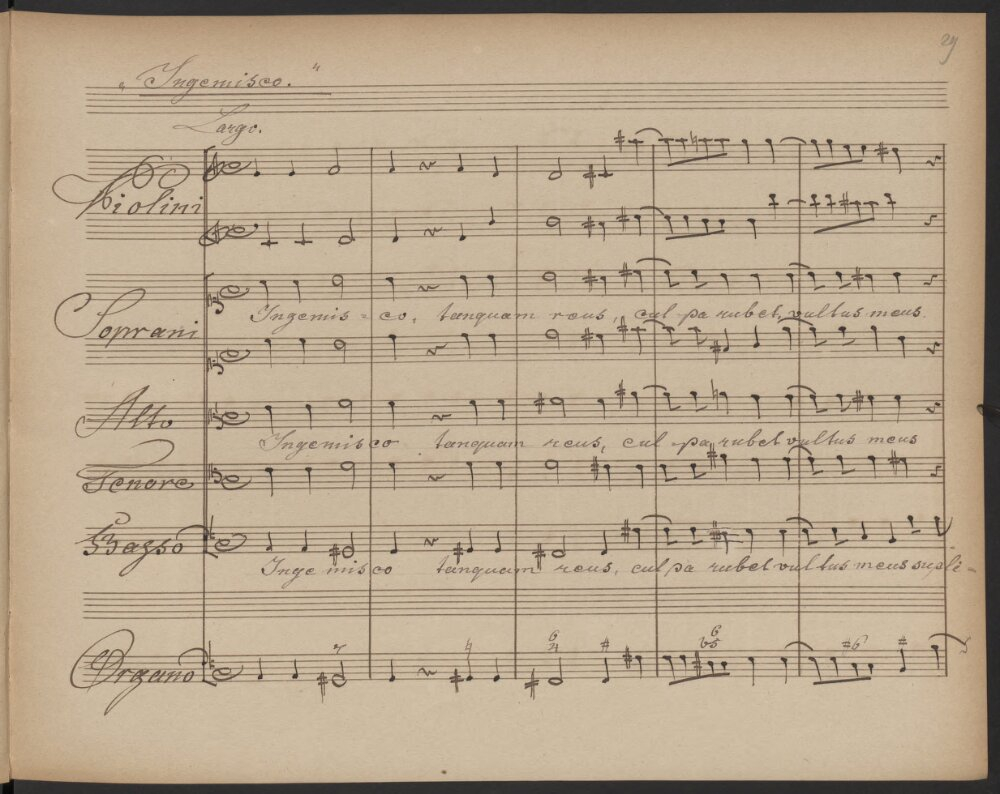 29
„Ingemisco.“
Largo.
Violini
Soprani
Ingemis = co, tanquam reus, cul pa rubet, vultus meus.
Alto
Ingemisco tanquam reus, cul pa, rubet vultus meus
Tenore
Basso
Inge misco tanquam reus, culpa rubet vultus meus supli-
7 4 6 4 # 6 b5 #6 #
Organo